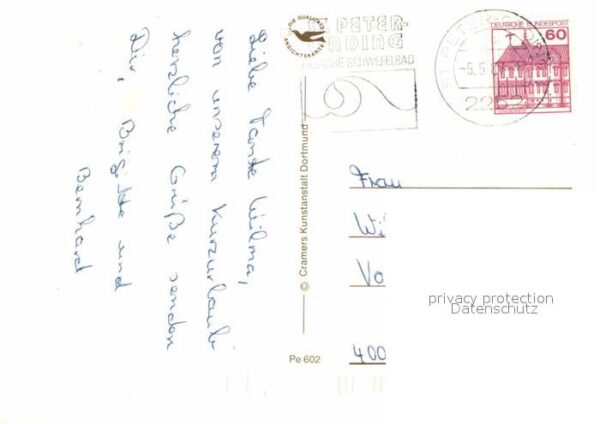 Liebe Tante Wilma,
von unserem Kurzurlaub
herzliche Grüße senden
Dir, Brigitte und
Bernhard
DIE QUALITÄTS
ANSICHTSKARTE
© Cramers Kunstanstalt Dortmund
Pe 602
ST. PETER-
ORDING
SCHWEFELBAD
ST. PETER-ORDING
-5.5
2252
DEUTSCHE BUNDESPOST
60
Frau
Wi
Vo
400
privacy protection
Datenschutz